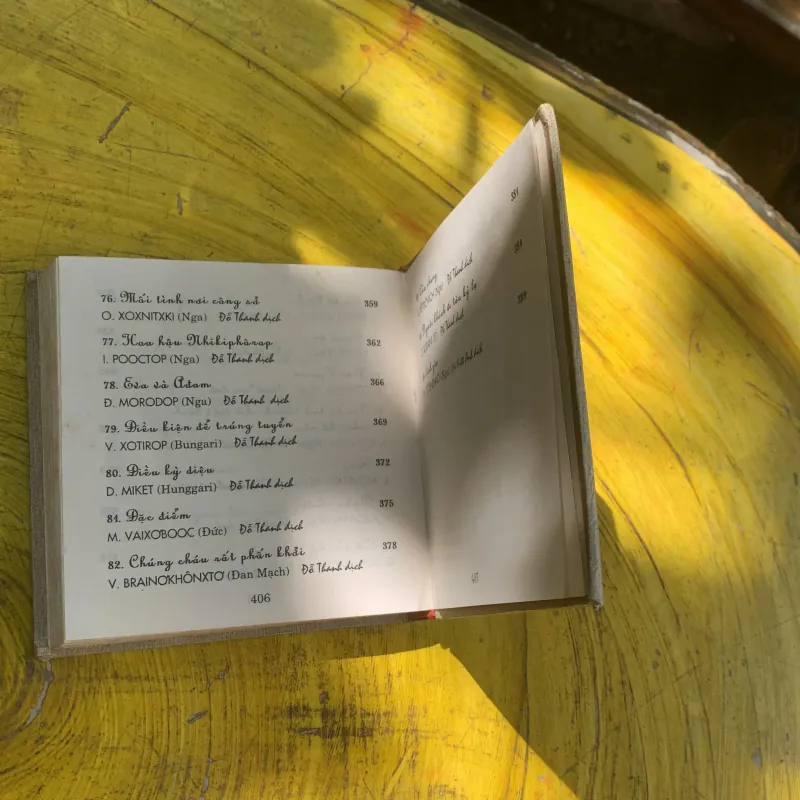 76. Mối tình nơi công sở 359
O. XOXNITXKI (Nga) Đỗ Thanh dịch
77. Hoa hậu Nhikiphôrap 362
I. POOCTOP (Nga) Đỗ Thanh dịch
78. Eva và Adam 366
Đ. MORODOP (Nga) Đỗ Thanh dịch
79. Điều kiện để trúng tuyển 369
V. XOTIROP (Bungari) Đỗ Thanh dịch
80. Điều kỳ diệu 372
D. MIKET (Hunggari) Đỗ Thanh dịch
81. Đặc điểm 375
M. VAIXOBOOC (Đức) Đỗ Thanh dịch
82. Chúng cháu rất phấn khởi 378
V. BRAINƠKHÔNXTƠ (Đan Mạch) Đỗ Thanh dịch
406
381
Đỗ Thanh dịch
384
Người khách du lịch kỳ lạ
Đỗ Thanh dịch
389
dịch
407